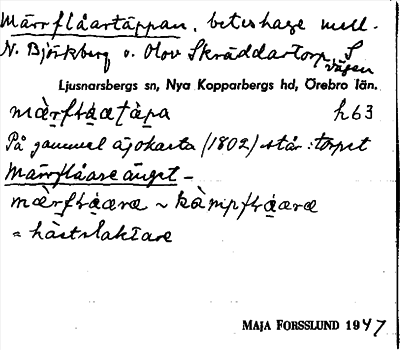 Märrflåartäppan, beteshage mell.
N. Björkberg o. Olov Skräddartorp, S
vägen
Ljusnarsbergs sn, Nya Kopparbergs hd, Örebro län.
h63
På gammal ägokarta (1802) står: torpet
Märrflåareänget –
= hästslaktare
MAJA FORSSLUND 1947